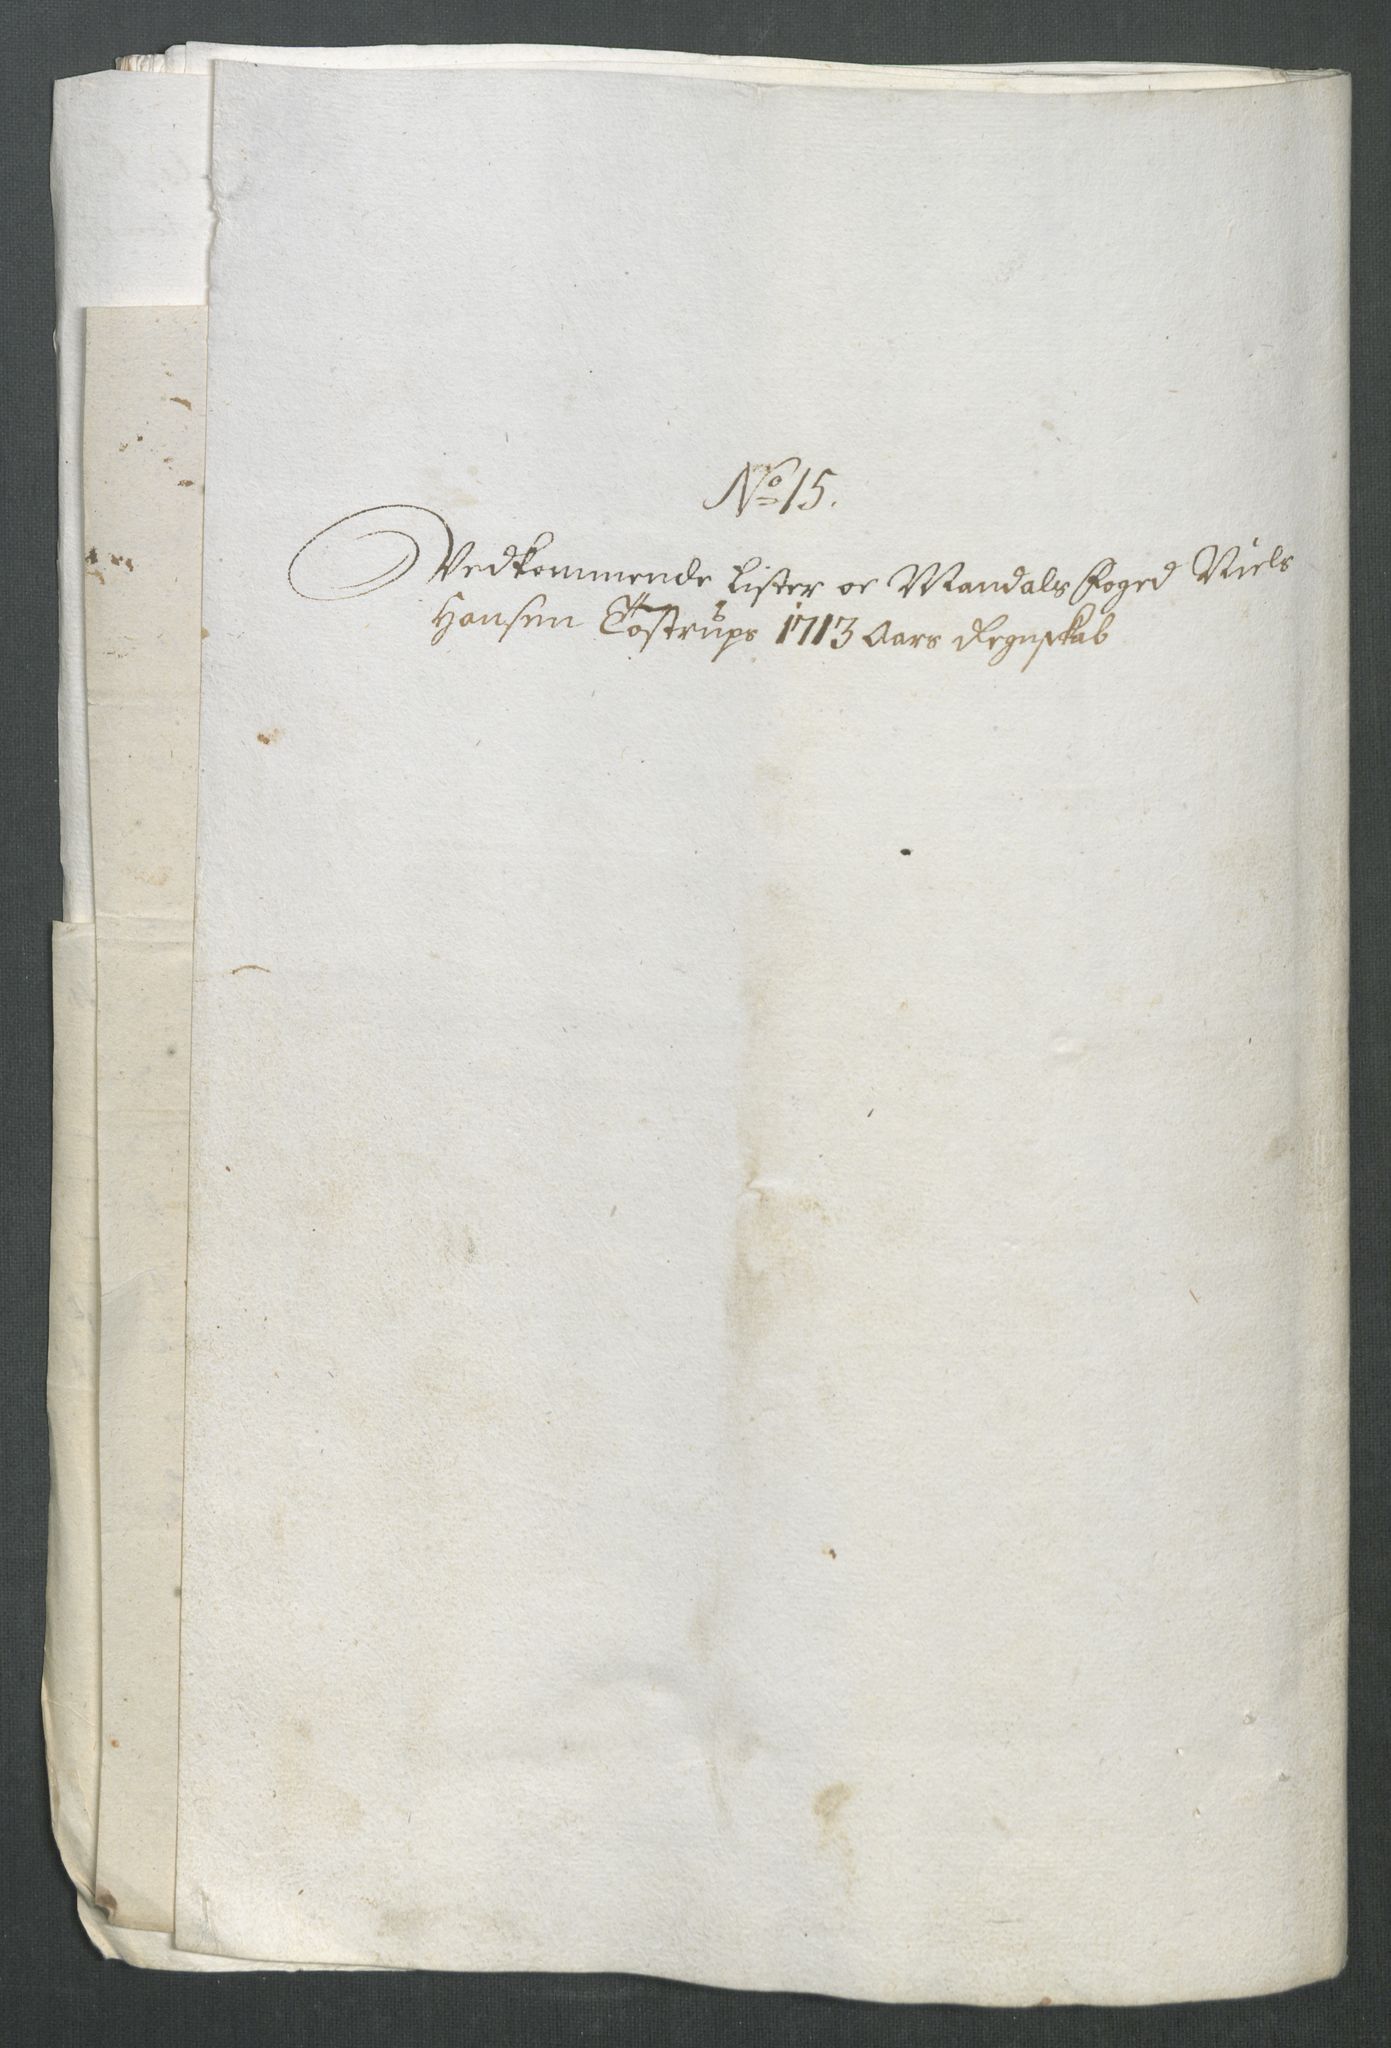 No 15.
Vedkommende Lister oc Mandals Foged Niels
Hansen Tostrups 1713 Aars Regnskab